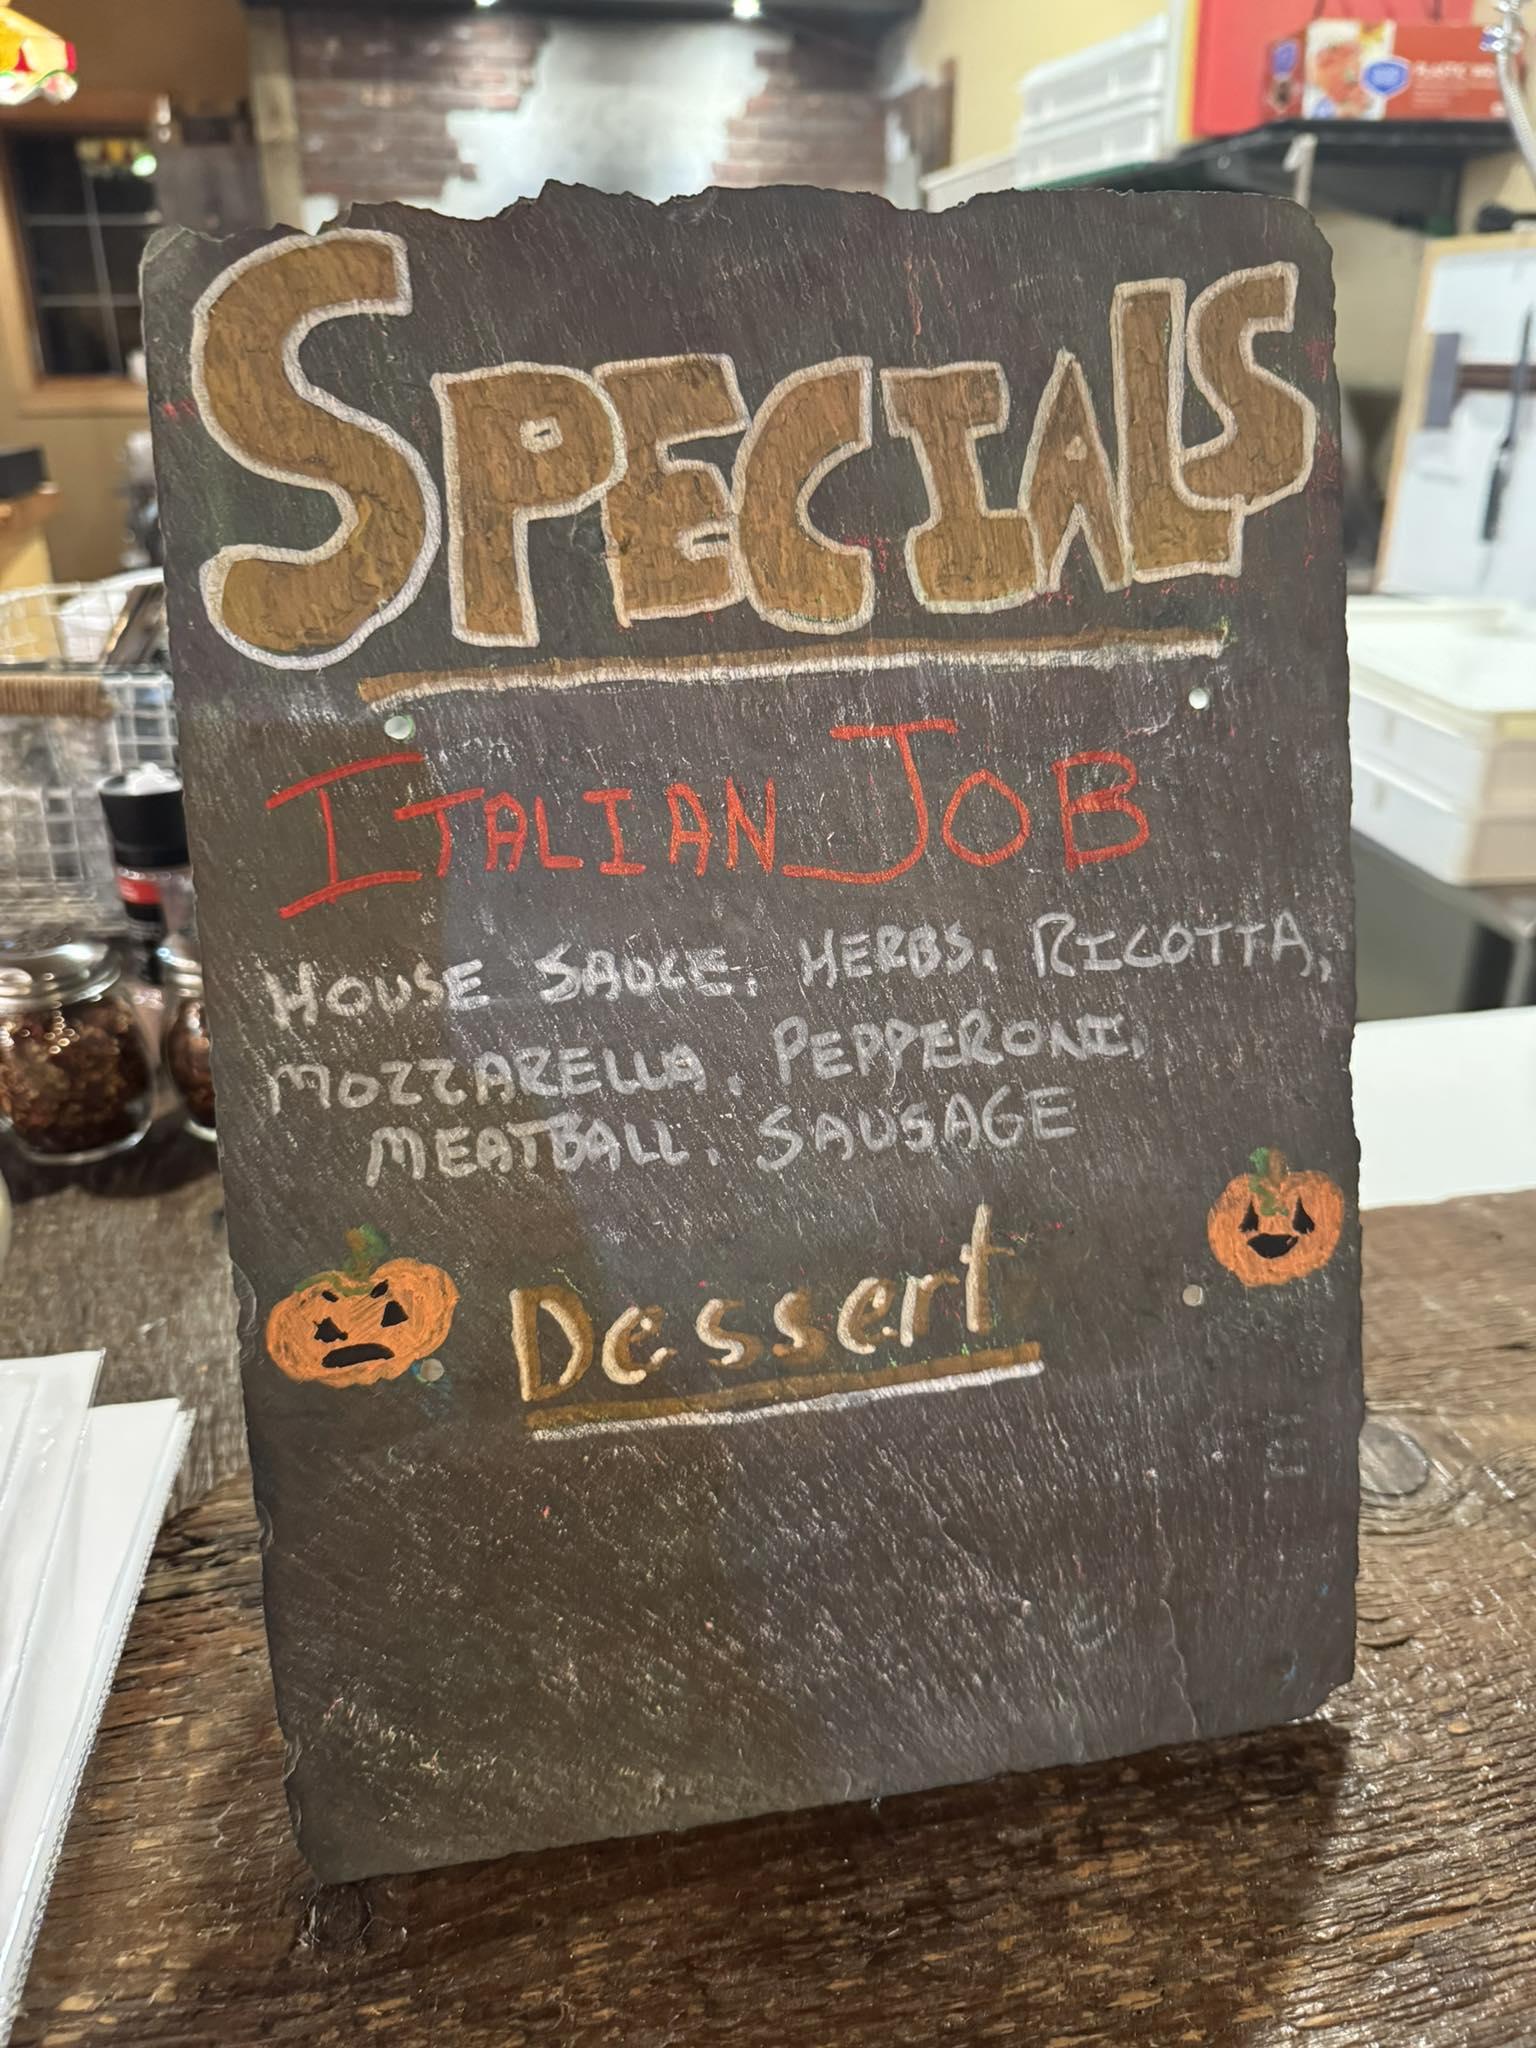 SPECIALS
ITALIAN JOB
HOUSE SAUCE, HERBS, RICOTTA,
MOZZARELLA, PEPPERONI,
MEATBALL, SAUSAGE
Dessert